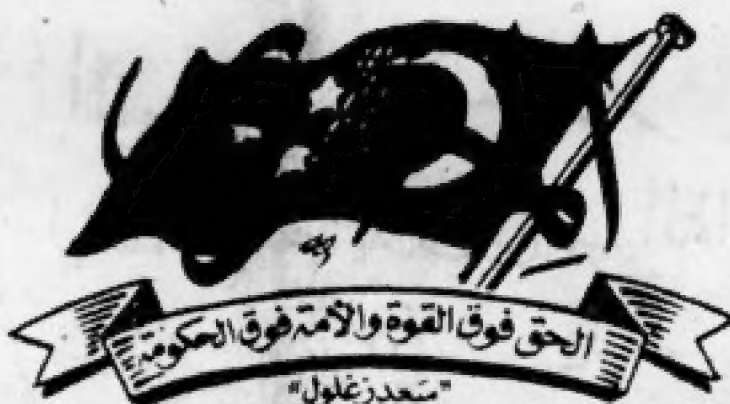 الحق فوق القوة والأمة فوق الحكومة
"سعد زغلول"